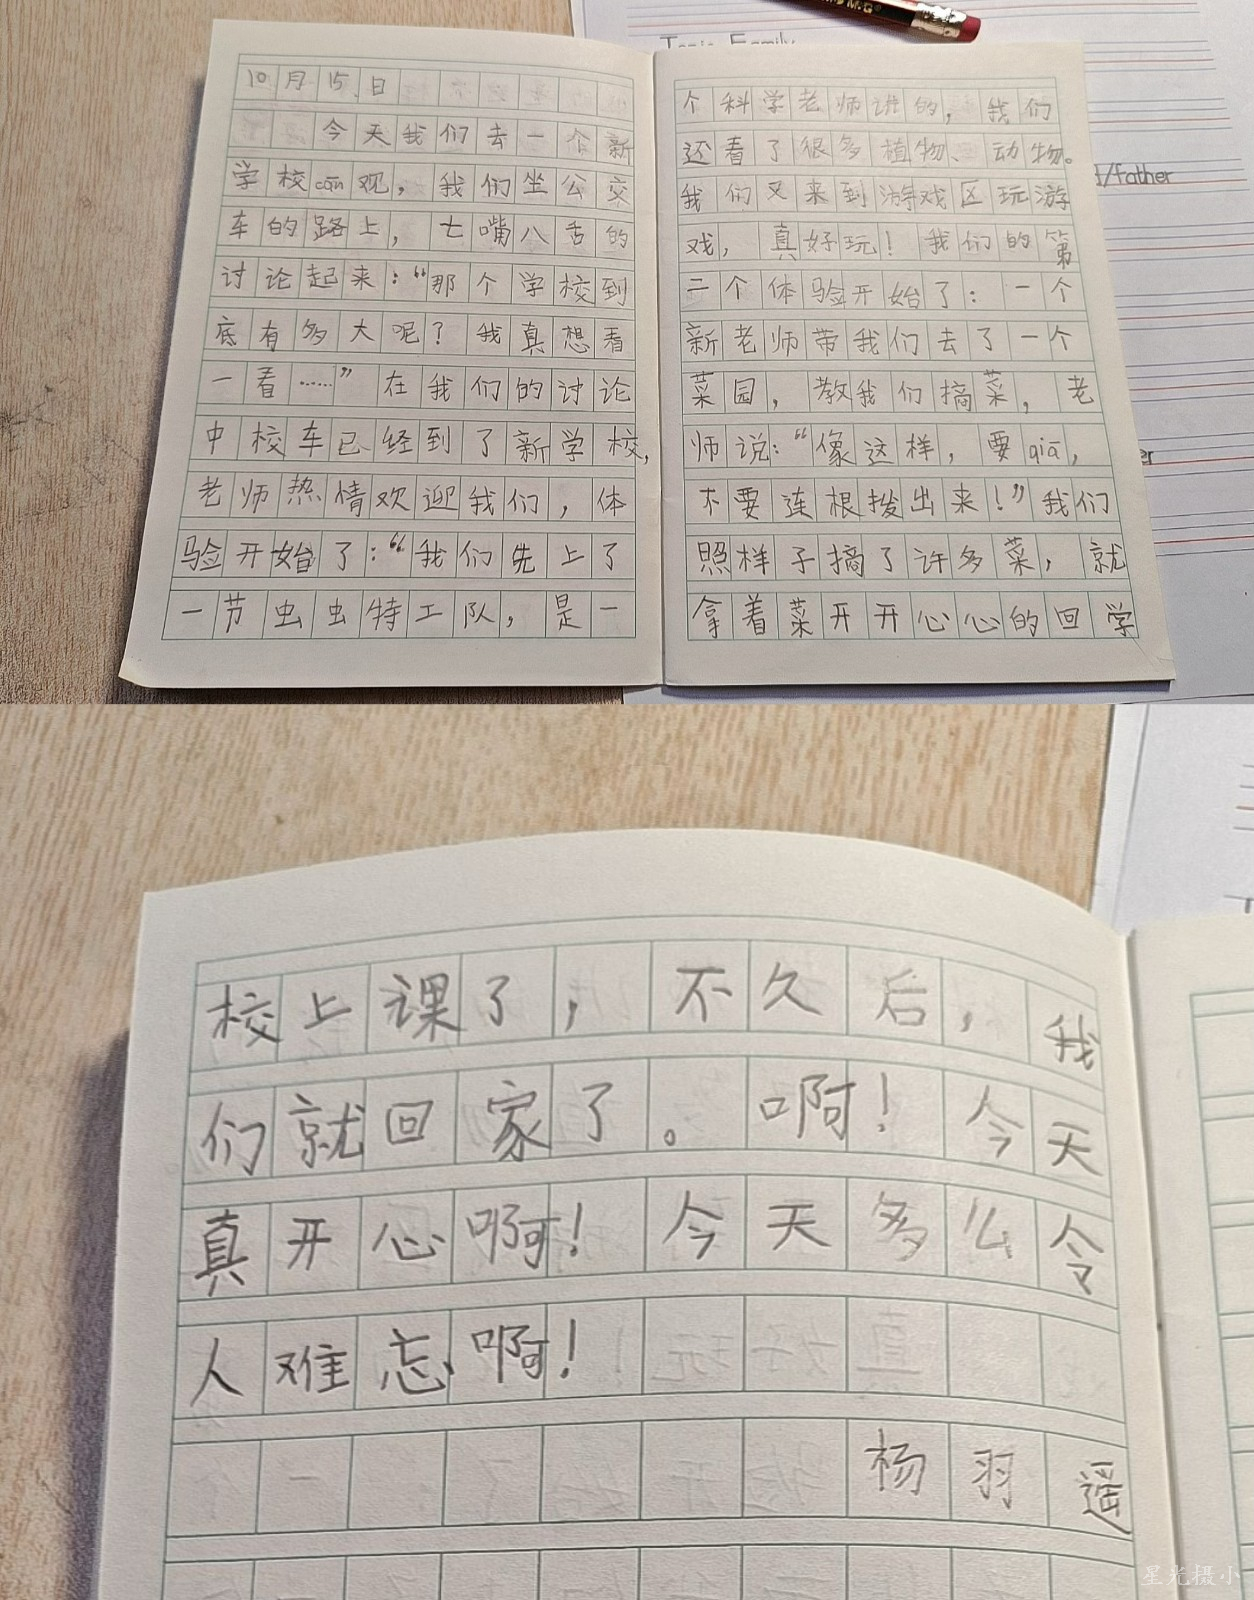 10月15日
今天我们去一个新
学校cān观，我们坐公交
车的路上，七嘴八舌的
讨论起来：“那个学校到
底有多大呢？我真想看
一看……”在我们的讨论
中校车已经到了新学校，
老师热情欢迎我们，体
验开始了：“我们先上了
一节虫虫特工队，是一
个科学老师讲的，我们
还看了很多植物、动物。
我们又来到游戏区玩游
戏，真好玩！我们的第
二个体验开始了：一个
新老师带我们去了一个
菜园，教我们摘菜，老
师说：“像这样，要qiā，
不要连根拨出来！”我们
照样子摘了许多菜，就
拿着菜开开心心的回学
M.G
Topic Family
d/father
er
校上课了，不久后，我
们就回家了。啊！今天
真开心啊！今天多么令
人难忘啊！
杨羽遥
星光摄小